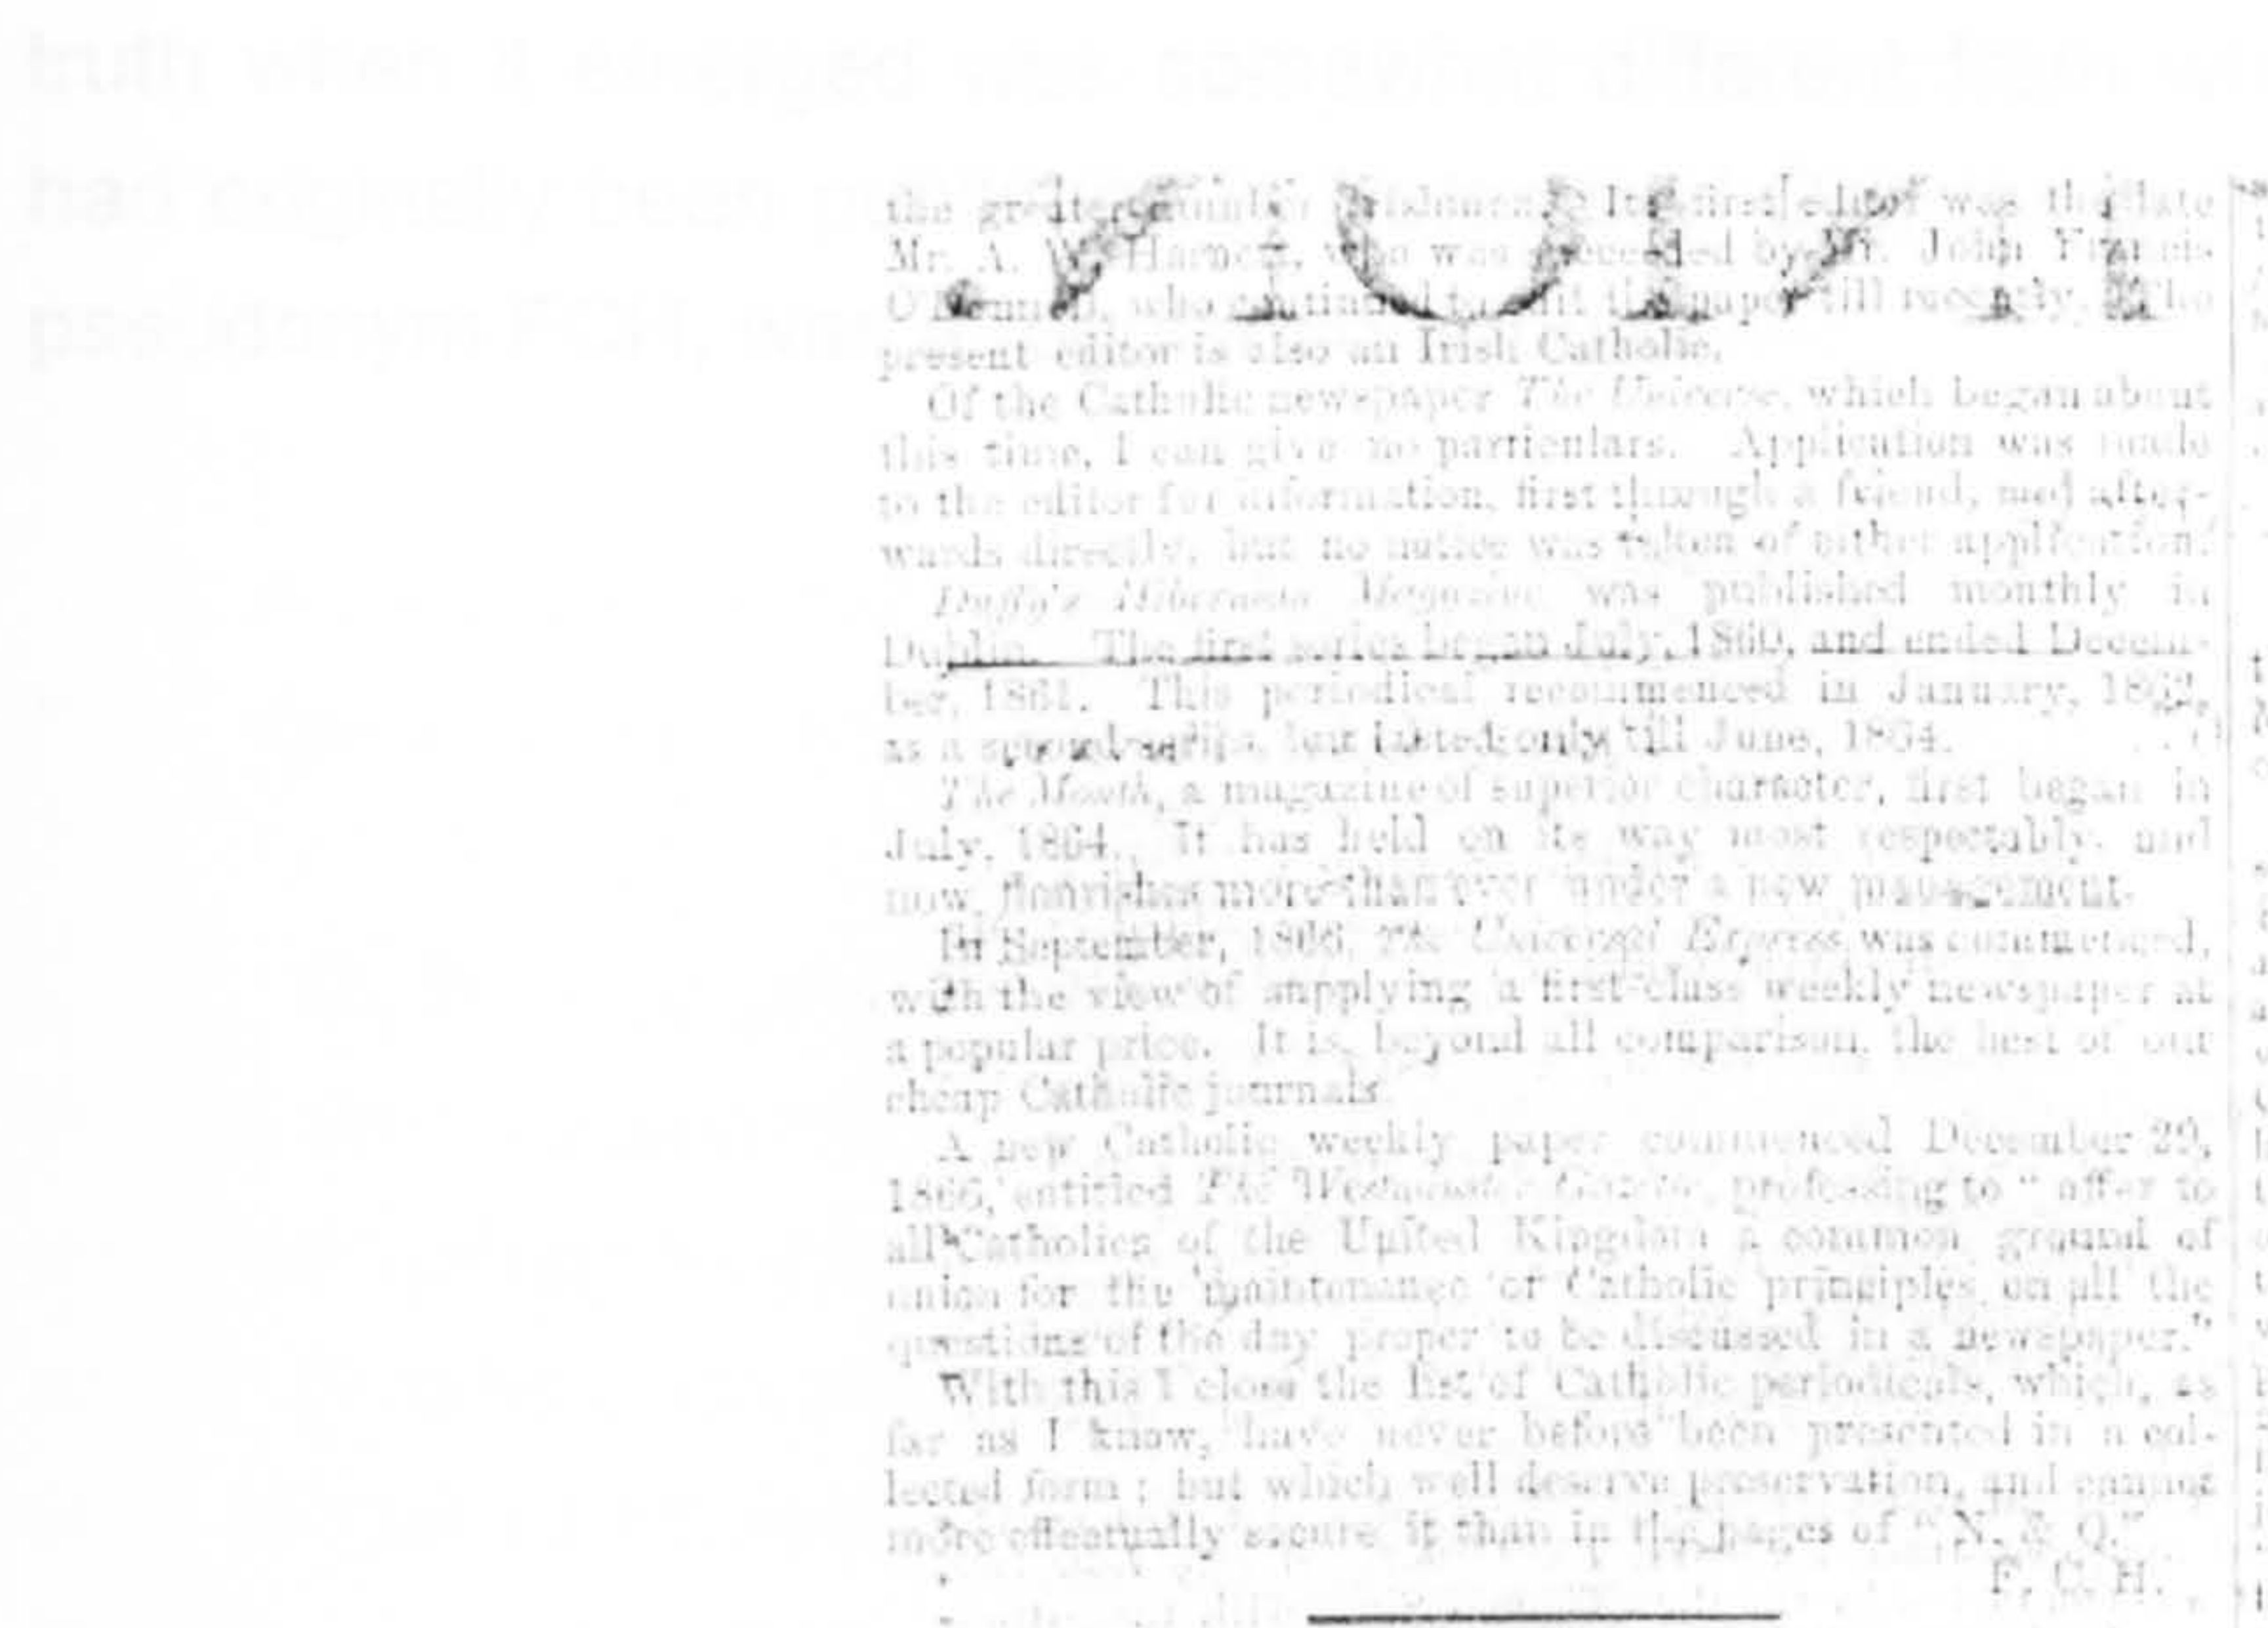 truth when it emerged was somewhat different from
had originally been
pseudonym FCH, was
the greater number Irishmen. Its first editor was the late
Mr. A. W. Harnett, who was succeeded by Mr. John Francis
O'Donnell, who continued to edit the paper till recently. The
present editor is also an Irish Catholic.
Of the Catholic newspaper The Universe, which began about
this time, I can give no particulars. Application was made
to the editor for information, first through a friend, and after-
wards directly, but no notice was taken of either application.
Duffy's Hibernian Magazine was published monthly in
Dublin. The first series began July, 1860, and ended Decem-
ber, 1861. This periodical recommenced in January, 1862,
as a second series, but lasted only till June, 1864.
The Month, a magazine of superior character, first began in
July, 1864. It has held on its way most respectably, and
now flourishes more than ever under a new management.
In September, 1866, The Universal Express was commenced,
with the view of supplying a first-class weekly newspaper at
a popular price. It is, beyond all comparison, the best of our
cheap Catholic journals.
A new Catholic weekly paper commenced December 29,
1866, entitled The Westminster Gazette, professing to " offer to
all Catholics of the United Kingdom a common ground of
union for the maintenance of Catholic principles on all the
questions of the day proper to be discussed in a newspaper."
With this I close the list of Catholic periodicals, which, as
far as I know, have never before been presented in a col-
lected form ; but which well deserve preservation, and cannot
more effectually secure it than in the pages of " N. & Q."
F. C. H.